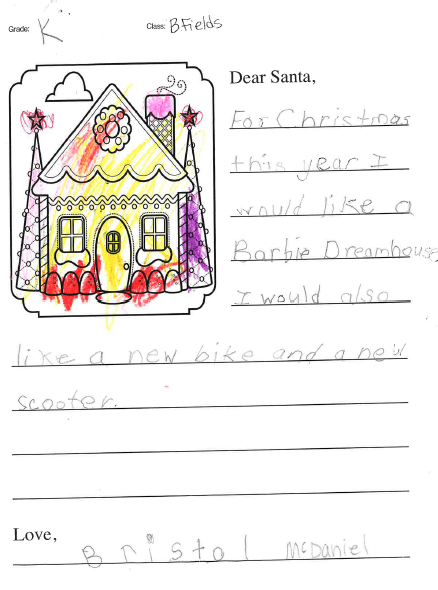 Grade: K Class: BFields
Dear Santa,
For Christmas
this year I
would like a
Barbie Dreamhouse,
I would also
like a new bike and a new
scooter.
Love,
Bristol McDaniel